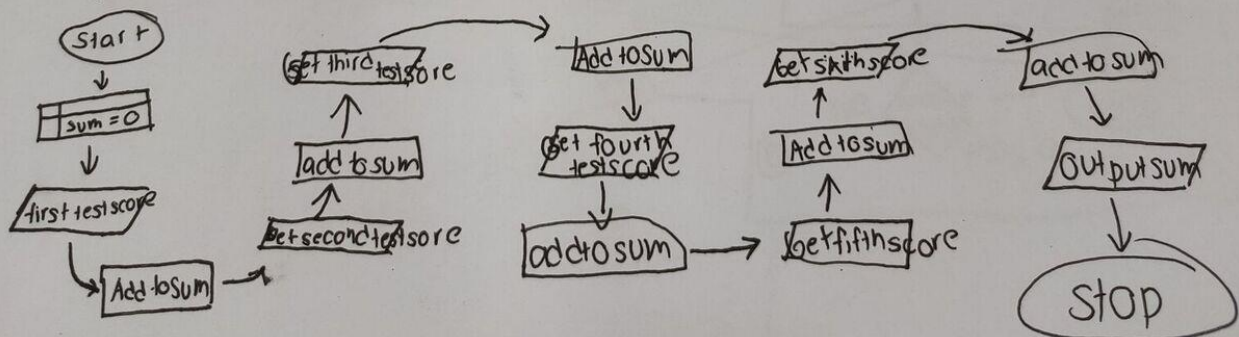 Start
sum = 0
first test score
Add to Sum
Get second test sore
add to sum
Get third test score
Add to Sum
Get fourth
test score
add to sum
Get fifth score
Add to sum
Get sixth score
add to sum
output sum
Stop